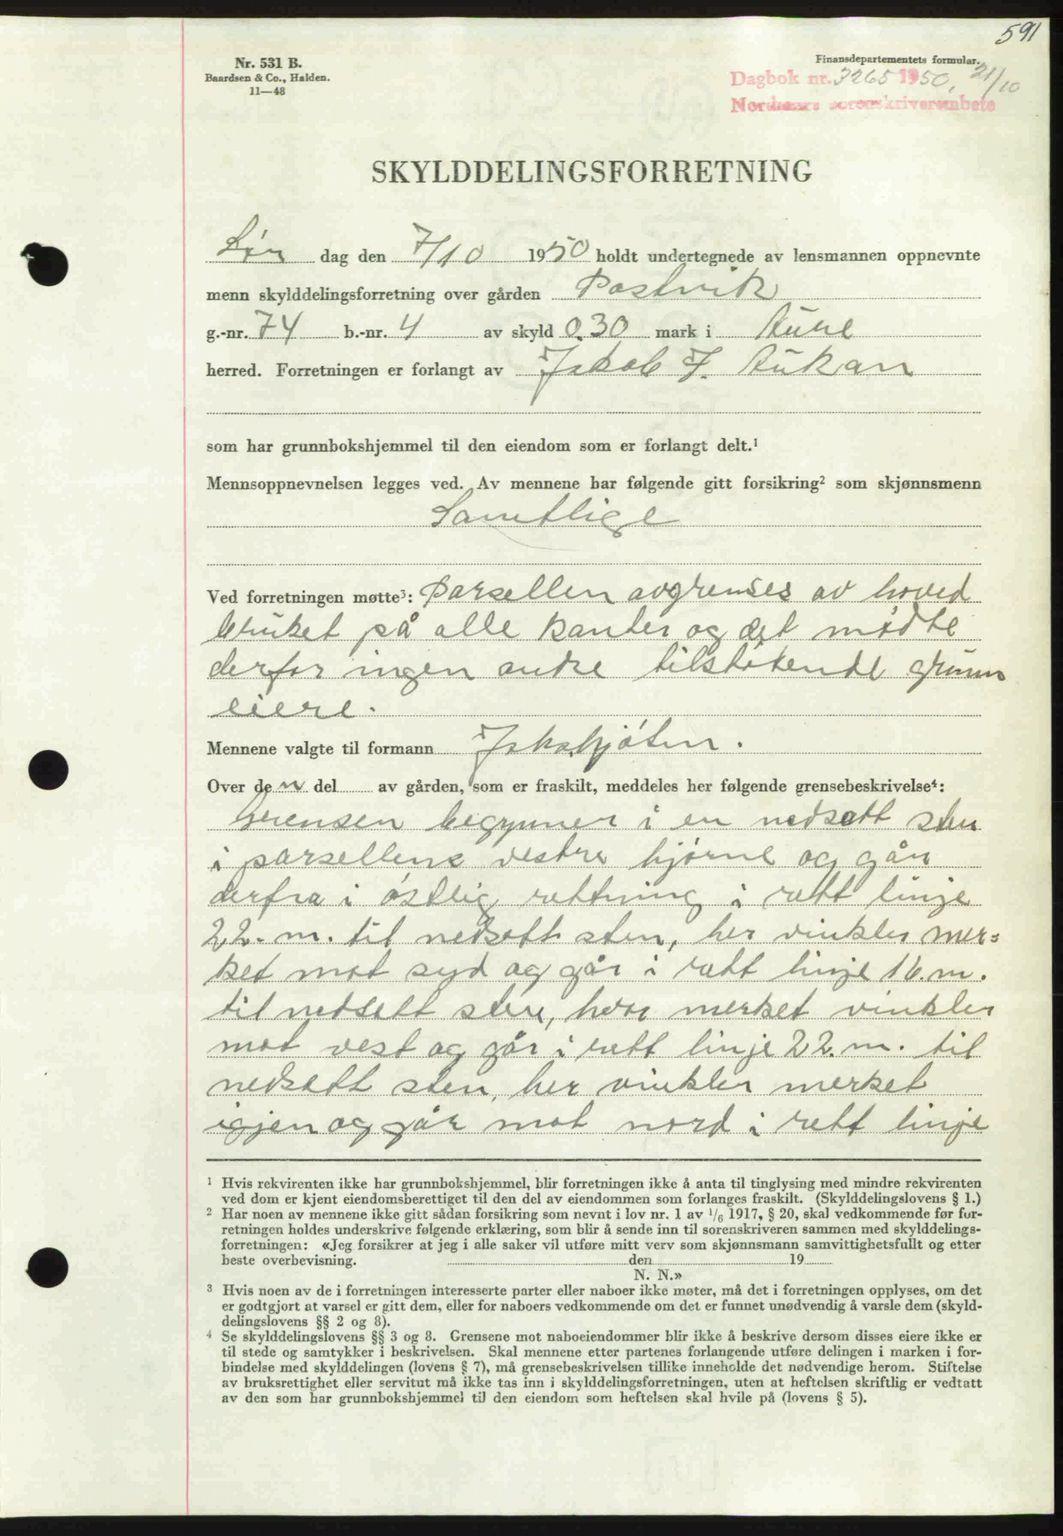 591
Nr. 531 B.
Baardsen & Co., Halden.
11—48
Finansdepartementets formular.
Dagbok nr. 3265 1950, 21/10
Nordmøre sorenskriverembete
SKYLDDELINGSFORRETNING
Lør dag den 7/10 1950 holdt undertegnede av lensmannen oppnevnte
menn skylddelingsforretning over gården Postvik
g.-nr. 74 b.-nr. 4 av skyld 0.30 mark i Aure
herred. Forretningen er forlangt av Jakob J. Aukan
som har grunnbokshjemmel til den eiendom som er forlangt delt.¹
Mennsoppnevnelsen legges ved. Av mennene har følgende gitt forsikring² som skjønnsmenn
Samtlige
Ved forretningen møtte³: Parsellen avgrenses av hoved
bruket på alle kanter og det mødte
derfor ingen andre tilstøtende grunn
eiere.
Mennene valgte til formann
Over den del av gården, som er fraskilt, meddeles her følgende grensebeskrivelse⁴:
Grensen begynner i en nedsatt sten
i parsellens vestre hjørne og går
derfra i østlig rettning i rett linje
22. m. til nedsatt sten, her vinkler mer=
ket mot syd og går i rett linje 16. m.
til nedsatt sten, hvor merket vinkler
mot vest og går i rett linje 22. m. til
nedsatt sten, her vinkler merket
igjen og går mot nord i rett linje
¹ Hvis rekvirenten ikke har grunnbokshjemmel, blir forretningen ikke å anta til tinglysing med mindre rekvirenten
ved dom er kjent eiendomsberettiget til den del av eiendommen som forlanges fraskilt. (Skylddelingslovens § 1.)
² Har noen av mennene ikke gitt sådan forsikring som nevnt i lov nr. 1 av 1/6 1917, § 20, skal vedkommende før for-
retningen holdes underskrive følgende erklæring, som blir å sende inn til sorenskriveren sammen med skylddelings-
forretningen: «Jeg forsikrer at jeg i alle saker vil utføre mitt verv som skjønnsmann samvittighetsfullt og etter
beste overbevisning. den 19
N. N.»
³ Hvis noen av de i forretningen interesserte parter eller naboer ikke møter, må det i forretningen opplyses, om det
er godtgjort at varsel er gitt dem, eller for naboers vedkommende om det er funnet unødvendig å varsle dem (skyld-
delingslovens §§ 2 og 8).
⁴ Se skylddelingslovens §§ 3 og 8. Grensene mot naboeiendommer blir ikke å beskrive dersom disses eiere ikke er
til stede og samtykker i beskrivelsen. Skal mennene etter partenes forlangende utføre delingen i marken i for-
bindelse med skylddelingen (lovens § 7), må grensebeskrivelsen tillike inneholde det nødvendige herom. Stiftelse
av bruksrettighet eller servitut må ikke tas inn i skylddelingsforretningen, uten at heftelsen skriftlig er vedtatt
av den som har grunnbokshjemmel til den eiendom som heftelsen skal hvile på (lovens § 5).